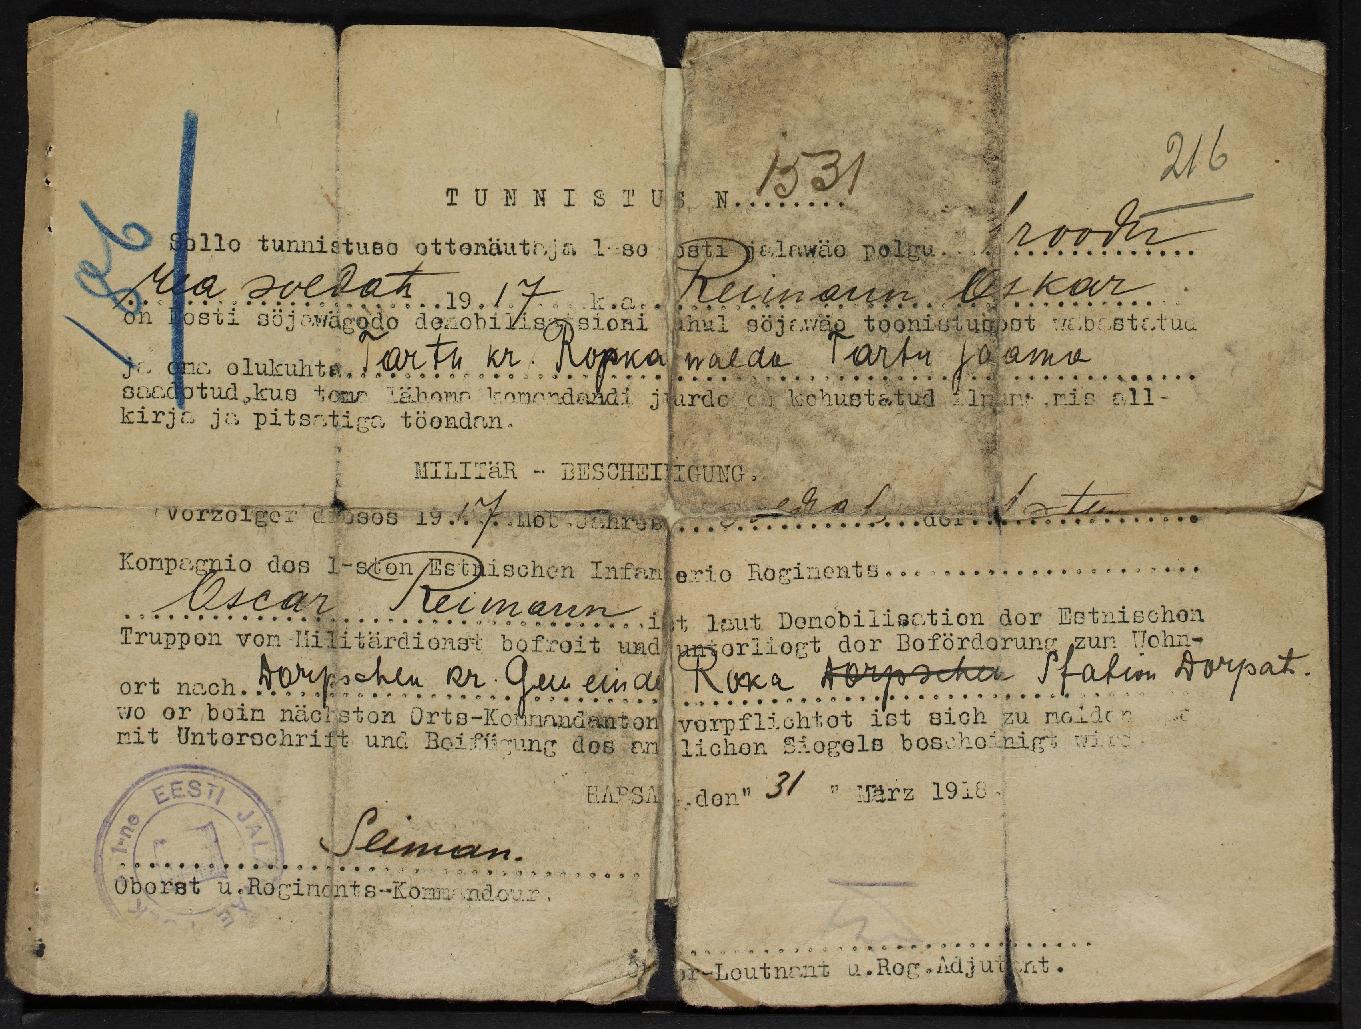 216
TUNNISTUS N. 1531
Sello tunnistuse ettenäutaja 1-se Eesti jalawäe polgu roodu
rea soldat 1917 k.a. Reimann Oskar
on Eesti söjawägede demobilisatsioni puhul söjawäe teenistusest wabastatud
ja oma olukuhta Tartu kr. Ropka walda Tartu jaama
saadetud, kus tema lähema komandandi juurde on kohustatud ilmuma mis all-
kirja ja pitsatiga töendan.
MILITäR - BESCHEINIGUNG.
Vorzeiger dieses 1917. Mob. Jahres der 1sten
Kompagnie des 1-sten Estnischen Infanterie Regiments
Oscar Reimann ist laut Demobilisation der Estnischen
Truppen vom Militärdienst befreit und unterliegt der Beförderung zum Wohn-
ort nach Dorpschen kr. Gemeinde Roka Dorpschen Station Dorpat.
wo er beim nächsten Orts-Kommandanten verpflichtet ist sich zu melden
mit Unterschrift und Beifügung des amtlichen Siegels bescheinigt wird.
HAPSAL, den "31" März 1918.
1-ne EESTI JALAWÄE POLK
Seiman.
Oberst u. Regiments-Kommandeur.
Ober-Leutnant u. Reg. Adjutant.